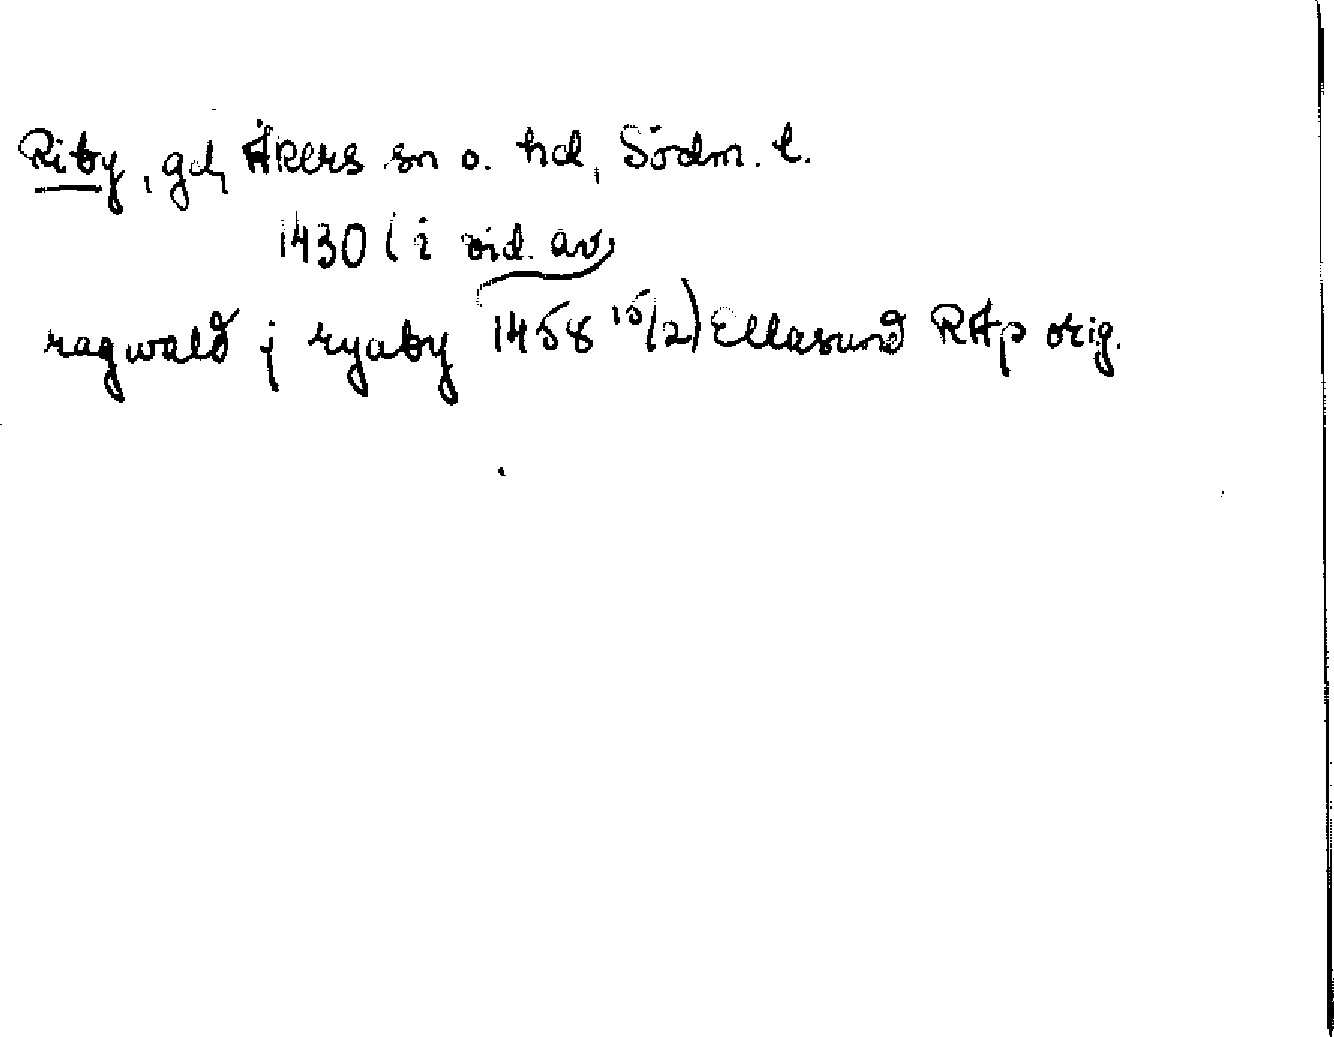 Riby, gd, Åkers sn o. hd, Södm. l.
1430 (i vid. av
ragwald j ryaby 1458 15/2) Ellasund RAp orig.